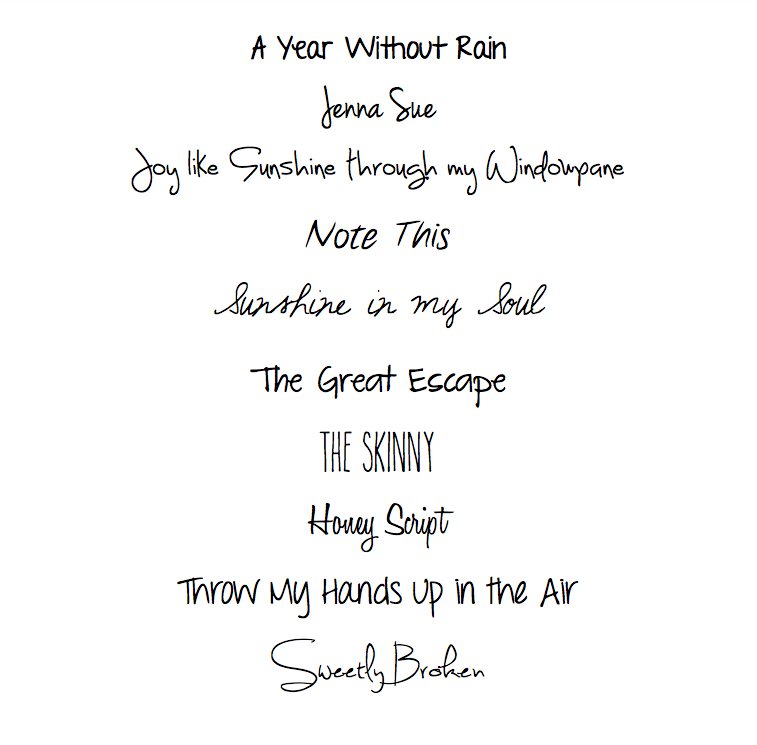 A Year Without Rain
Jenna Sue
Joy like Sunshine through my Windowpane
Note This
Sunshine in my Soul
The Great Escape
THE SKINNY
Honey Script
Throw My Hands Up in the Air
Sweetly Broken